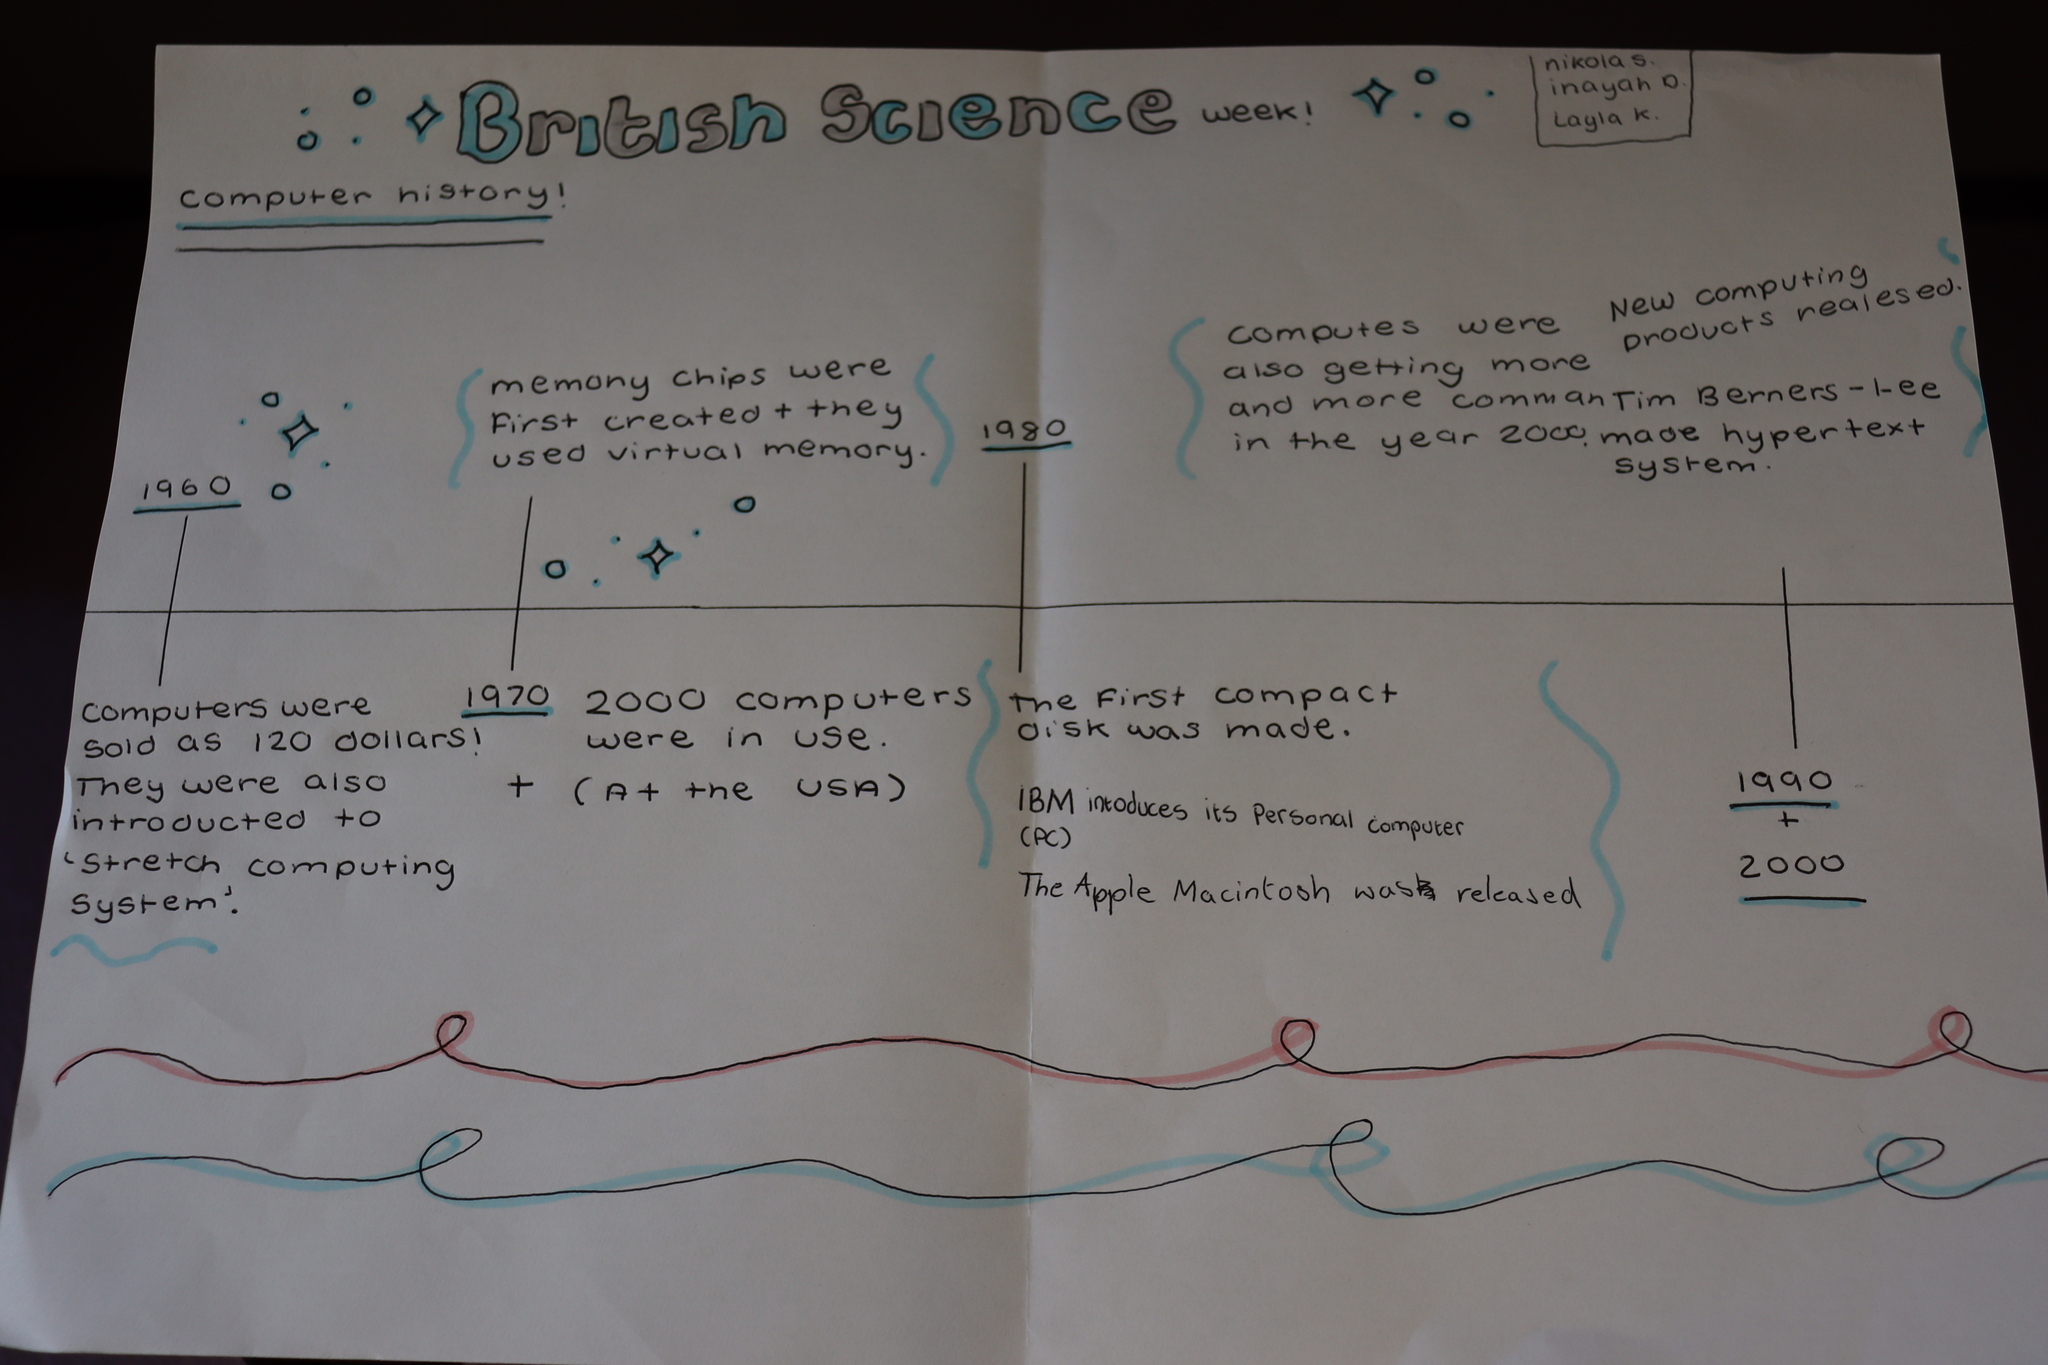 British Science week!
nikola s.
inayah D.
Layla K.
computer history!
1960
computers were
sold as 120 dollars!
They were also
introducted to
'stretch computing
system'.
memony chips were
first created + they
used virtual memory.
1970
+
2000 computers
were in use.
(At the USA)
1980
The first compact
disk was made.
IBM intoduces its Personal computer
(PC)
The Apple Macintosh was released
computes were
also getting more
and more comman
in the year 2000.
New computing
products realesed.
Tim Berners-Lee
made hypertext
system.
1990
+
2000